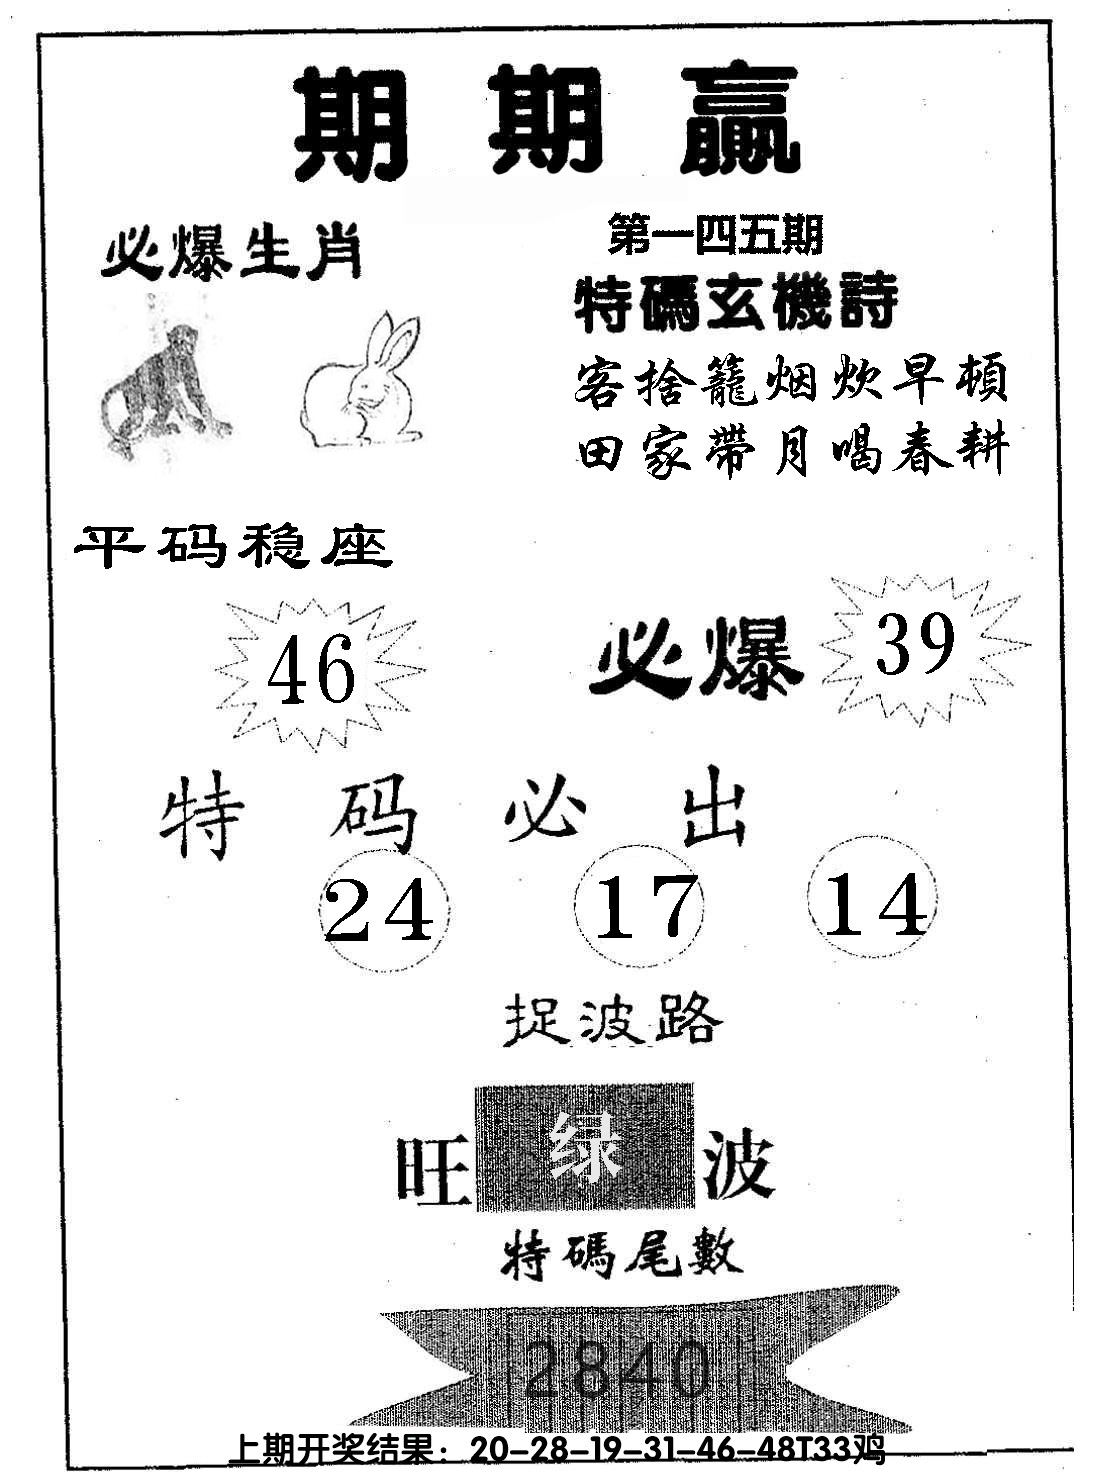 期期贏
必爆生肖
第一四五期
特碼玄機詩
客捨籠烟炊早頓
田家帶月喝春耕
平码稳座
46
必爆
39
特码必出
24 17 14
捉波路
旺绿波
特碼尾數
2840
上期开奖结果：20-28-19-31-46-48T33鸡